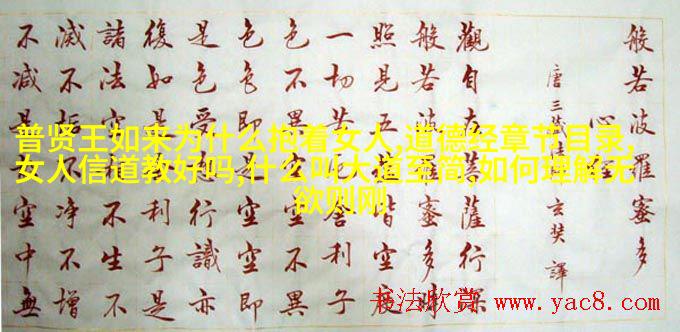 般若波羅蜜多
心經
唐三藏法師玄奘譯
觀自在菩薩行深
般若波羅蜜多時
照見五蘊皆空度
一切苦厄舍利子
色不異空空不異
色色即是空空即
是色受想行識亦
復如是舍利子是
諸法空相不生不
滅不垢不淨不增
不減是故空中無
普贤王如来为什么抱着女人,道德经章节目录,
女人信道教好吗,什么叫大道至简,如何理解无
欲则刚
书法欣赏 www.yac8.com